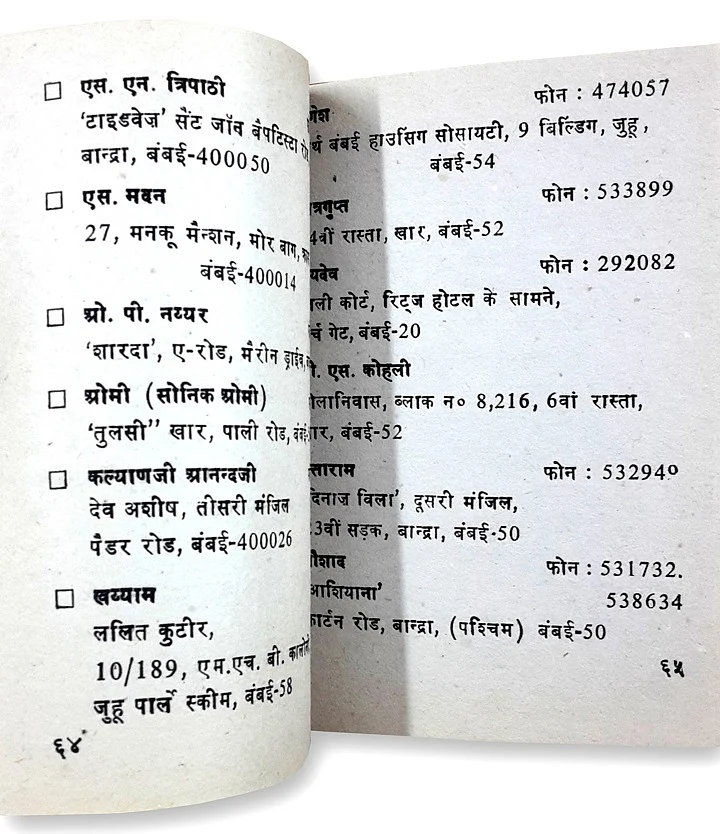 □ एस. एन. त्रिपाठी
‘टाइडवेज’ सैंट जॉव बैपटिस्टा रोड
बान्द्रा, बंबई-400050
□ एस. मदन
27, मनकू मैन्शन, मोर बाग,
बंबई-400014
□ ओ. पी. नय्यर
‘शारदा’, ए-रोड, मैरीन ड्राईव,
□ ओमी (सोनिक ओमी)
‘तुलसी” खार, पाली रोड,
□ कल्याणजी आनन्दजी
देव अशीष, तीसरी मंजिल
पैडर रोड, बंबई-400026
□ खय्याम
ललित कुटीर,
10/189, एम.एच. बी.
जुहू पार्ले स्कीम, बंबई-58
६४
फोन : 474057
बंबई हाउसिग सोसायटी, 9 बिल्डिंग, जुहू,
बंबई-54
फोन : 533899
रास्ता, खार, बंबई-52
फोन : 292082
कोर्ट, रिट्ज होटल के सामने,
गेट, बंबई-20
एस. कोहली
ब्लाक न० 8,216, 6वां रास्ता,
बंबई-52
फोन : 532940
विला’, दूसरी मंजिल,
सड़क, बान्द्रा, बंबई-50
फोन : 531732.
आशियाना’
538634
रोड, बान्द्रा, (पश्चिम) बंबई-50
६५